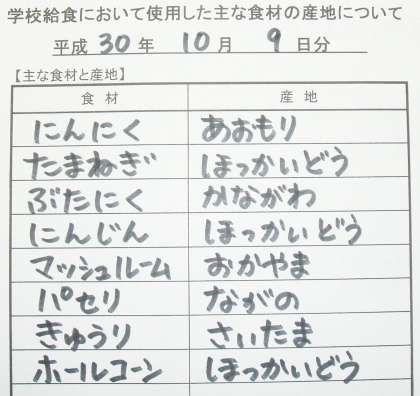 学校給食において使用した主な食材の産地について
平成 30 年 10 月 9 日分
【主な食材と産地】
食材 産地
にんにく あおもり
たまねぎ ほっかいどう
ぶたにく かながわ
にんじん ほっかいどう
マッシュルーム おかやま
パセリ ながの
きゅうり さいたま
ホールコーン ほっかいどう